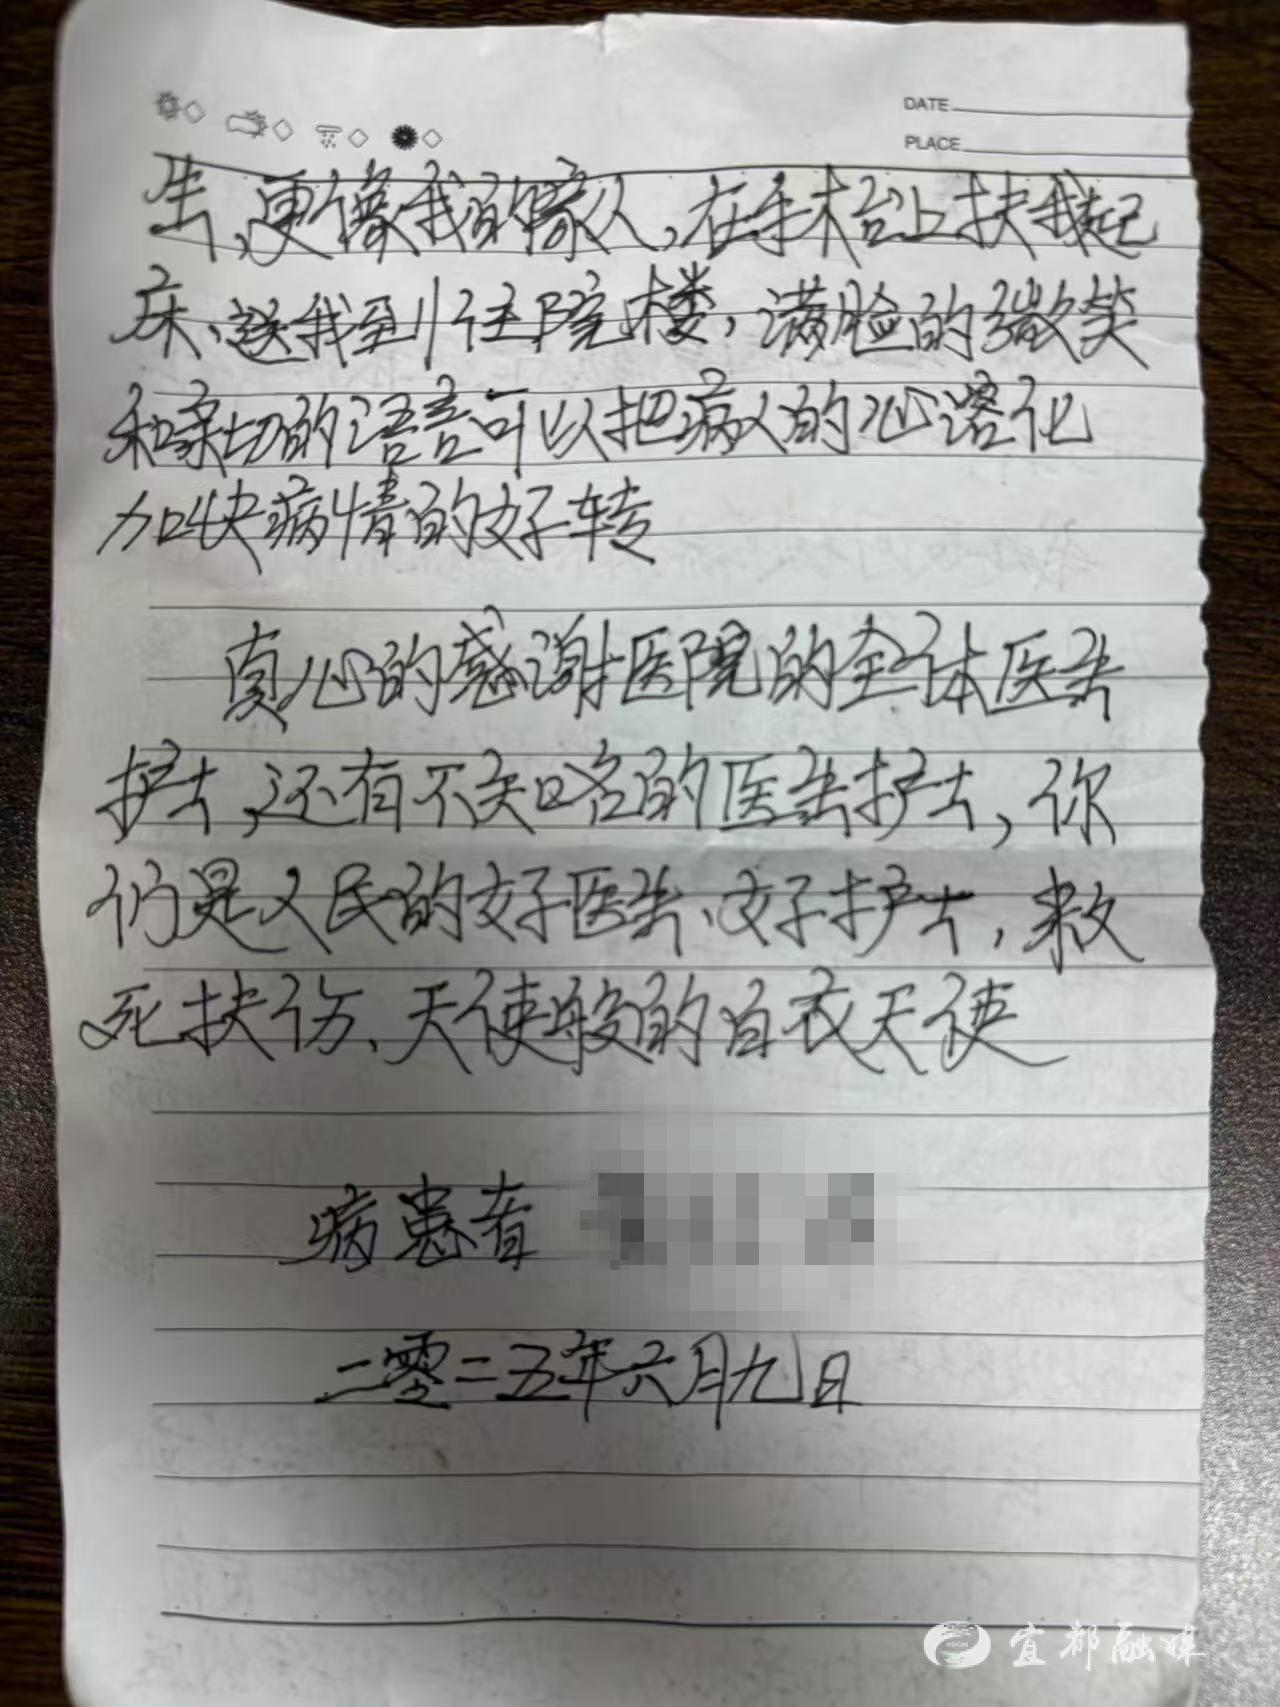 DATE
PLACE
生,更像我的家人,在手术台上扶我起
床、送我到住院楼,满脸的微笑
和亲切的语言可以把病人的心溶化
加快病情的好转
真心的感谢医院的全体医生
护士,还有不知名的医生护士,你
们是人民的好医生、好护士,救
死扶伤、天使般的白衣天使
病患者
二零二五年六月九日
宜都融媒